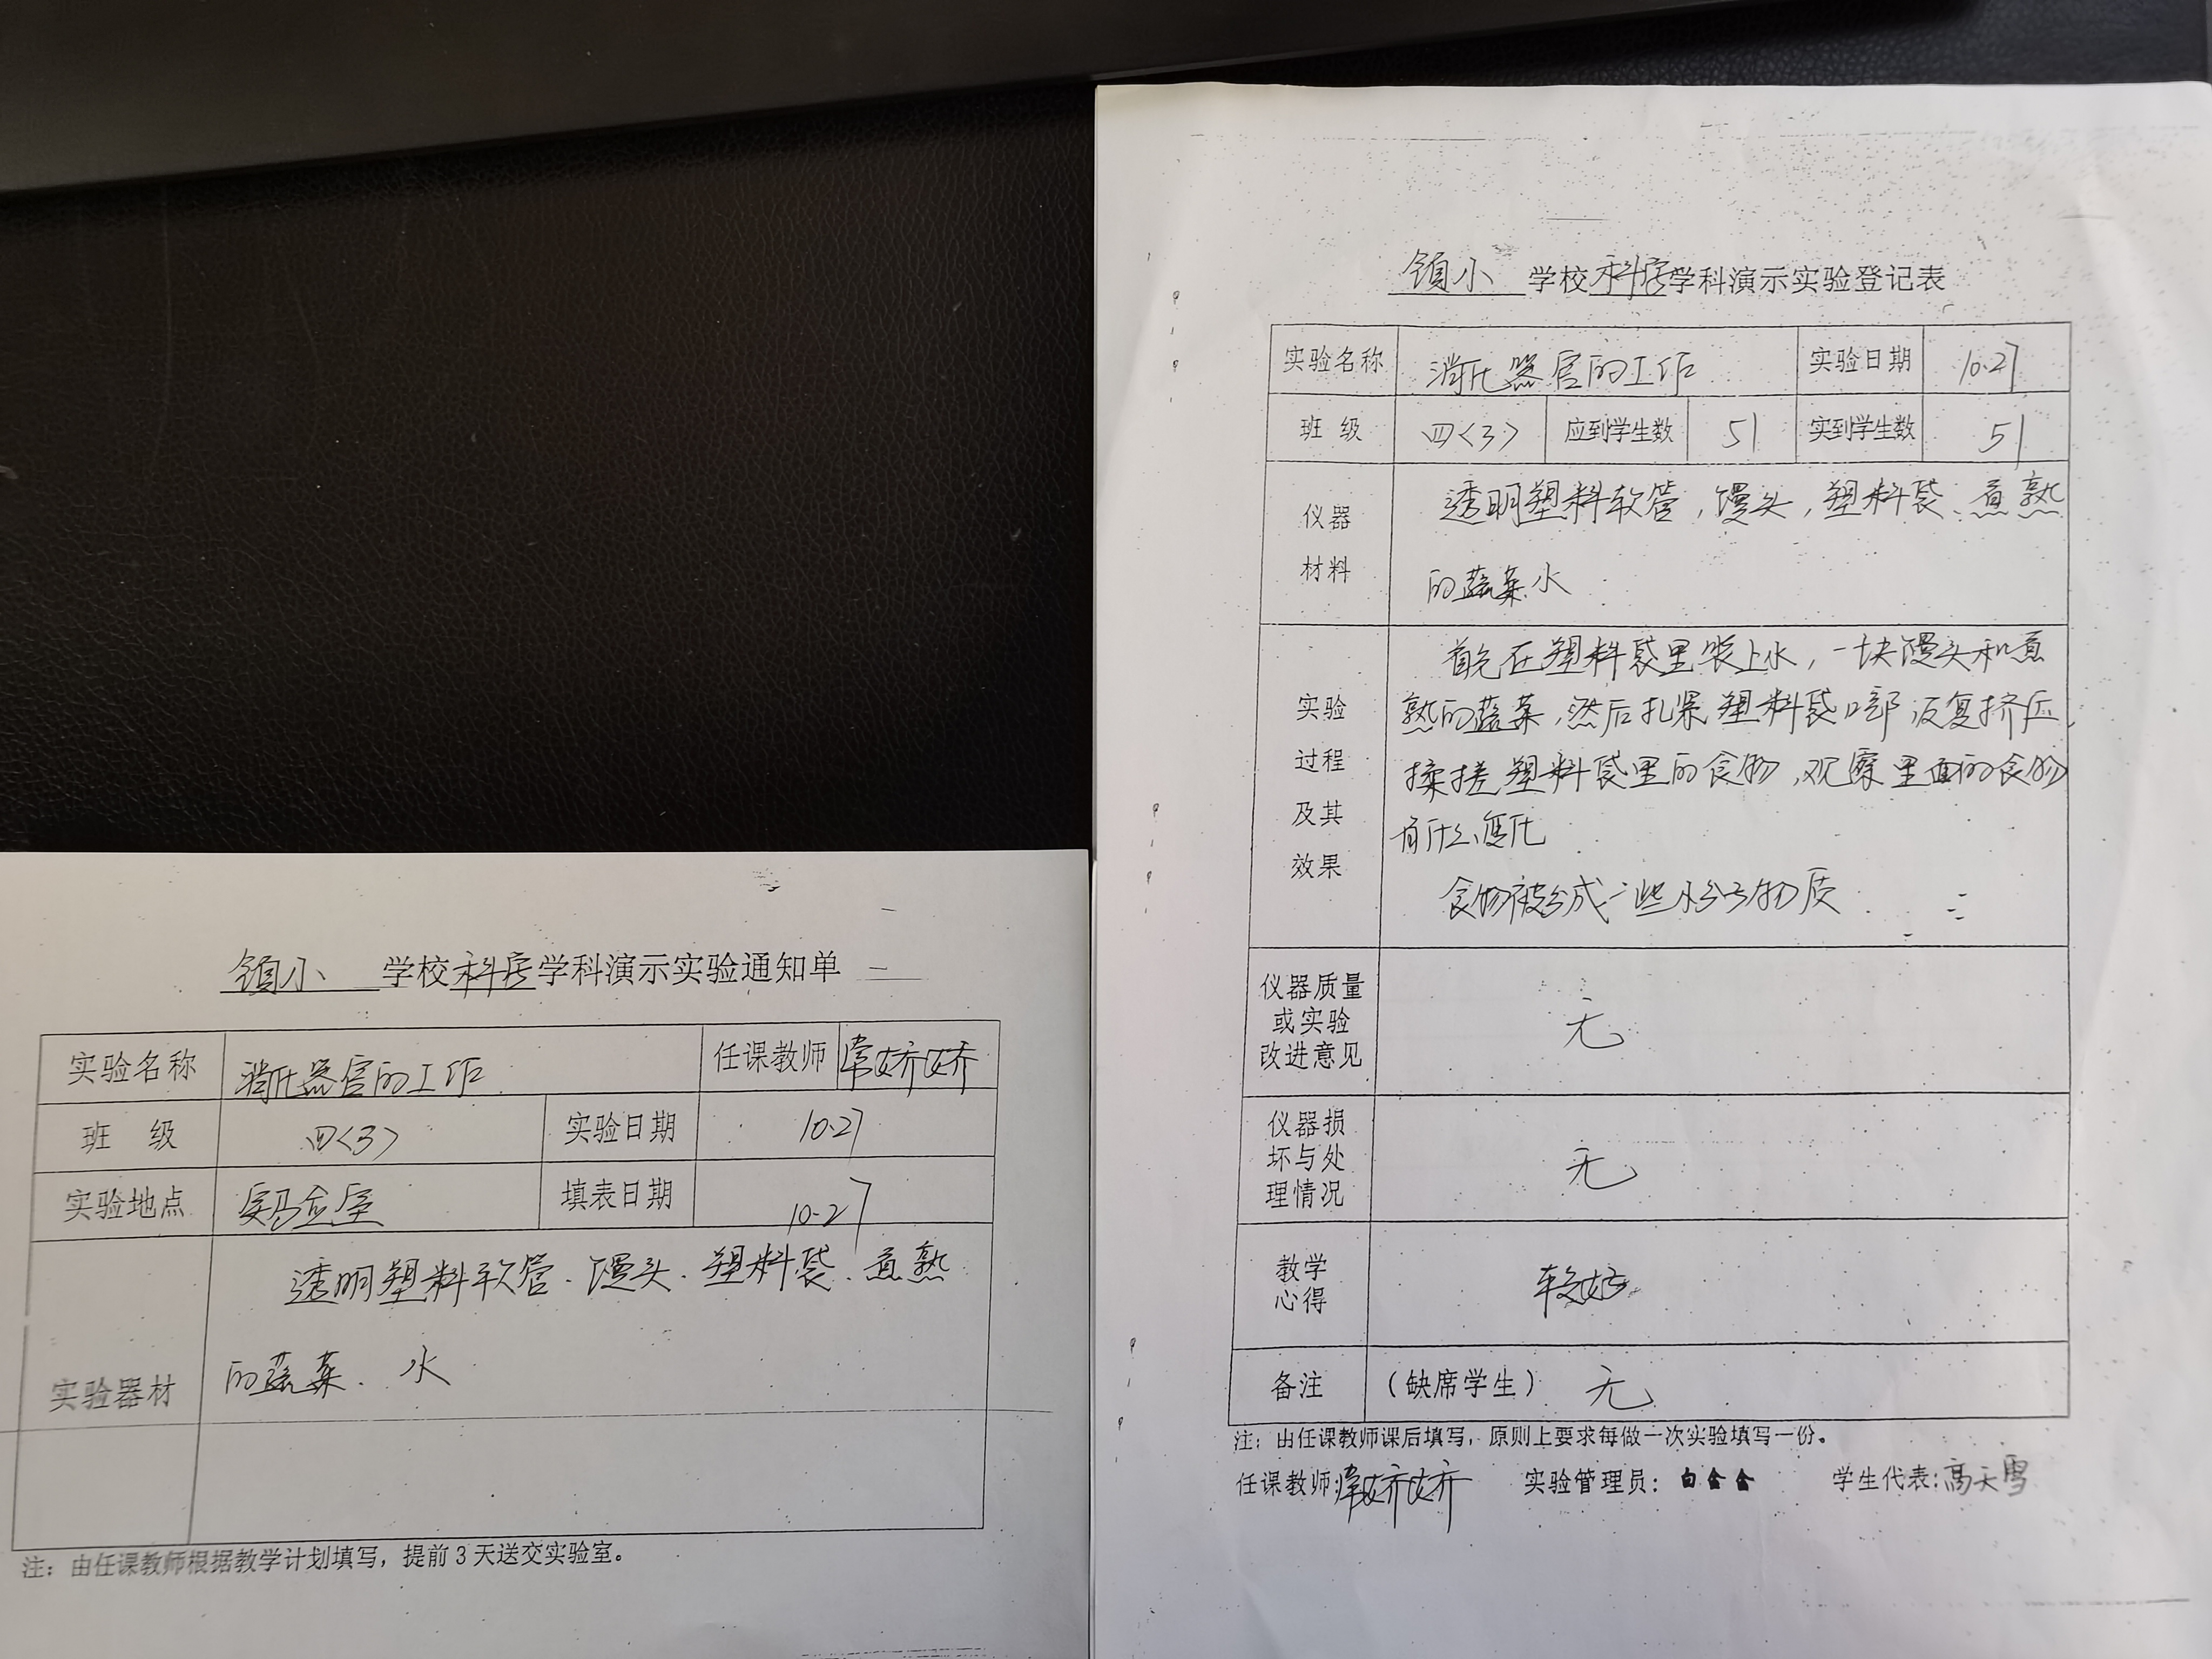 镇小 学校 科学 学科演示实验通知单
实验名称 消化器官的工作 任课教师 常娇娇
班 级 四<3> 实验日期 10.27
实验地点 实验室 填表日期 10.27
实验器材
透明塑料软管、馒头、塑料袋、煮熟
的蔬菜、水
注：由任课教师根据教学计划填写，提前3天送交实验室。
镇小 学校 科学 学科演示实验登记表
实验名称 消化器官的工作 实验日期 10.27
班 级 四<3> 应到学生数 51 实到学生数 51
仪器
材料
透明塑料软管，馒头，塑料袋、煮熟
的蔬菜、水
实验
过程
及其
效果
首先在塑料袋里装上水，一块馒头和煮
熟的蔬菜，然后扎紧塑料袋口部 反复挤压、
揉搓塑料袋里的食物，观察里面的食物
有什么变化
食物被分成一些小分子物质
仪器质量
或实验
改进意见
无
仪器损
坏与处
理情况
无
教学
心得
较好
备注 （缺席学生） 无
注：由任课教师课后填写，原则上要求每做一次实验填写一份。
任课教师：常娇娇 实验管理员： 学生代表：高天雪